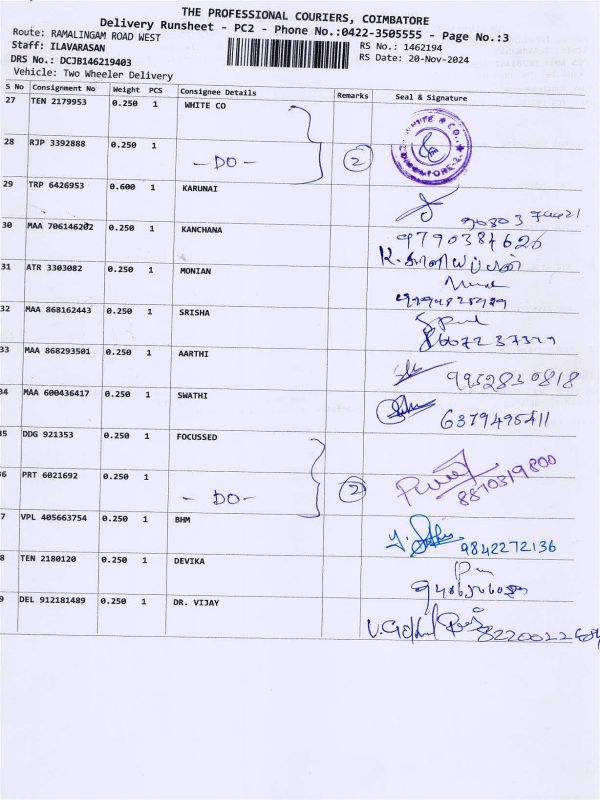 THE PROFESSIONAL COURIERS, COIMBATORE
Delivery Runsheet - PC2 - Phone No.:0422-3505555 - Page No.:3
Route: RAMALINGAM ROAD WEST
Staff: ILAVARASAN
RS No.: 1462194
DRS No.: DCJB146219403
RS Date: 20-Nov-2024
Vehicle: Two Wheeler Delivery
S No Consignment No Weight PCS Consignee Details Remarks Seal & Signature
27 TEN 2179953 0.250 1 WHITE CO
WHITE & CO.,
28 RJP 3392888 0.250 1 - DO - 2
29 TRP 6426953 0.600 1 KARUNAI
30 MAA 706146202 0.250 1 KANCHANA 9790384626
31 ATR 3303082 0.250 1 MONIAN
32 MAA 868162443 0.250 1 SRISHA
33 MAA 868293501 0.250 1 AARTHI 9952830818
34 MAA 600436417 0.250 1 SWATHI 6379495411
35 DDG 921353 0.250 1 FOCUSSED
36 PRT 6021692 0.250 1 - DO - 2 8870319800
7 VPL 405663754 0.250 1 BHM 9842272136
8 TEN 2180120 0.250 1 DEVIKA
9 DEL 912181489 0.250 1 DR. VIJAY